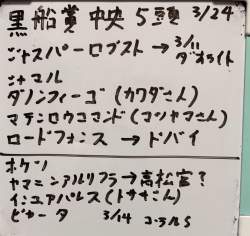 黒船賞 中央5頭 3/24
ジャスパーロブスト → 3/11 ダオライト
シャマル
ダノンフィーゴ (カワダさん)
マテンロウコマンド (マツヤマさん)
ロードフォンス → ドバイ
ホケツ
ヤマニンアルリフラ → 高松宮?
インユアパレス (トサキさん)
ビダータ 3/14 コーラルS